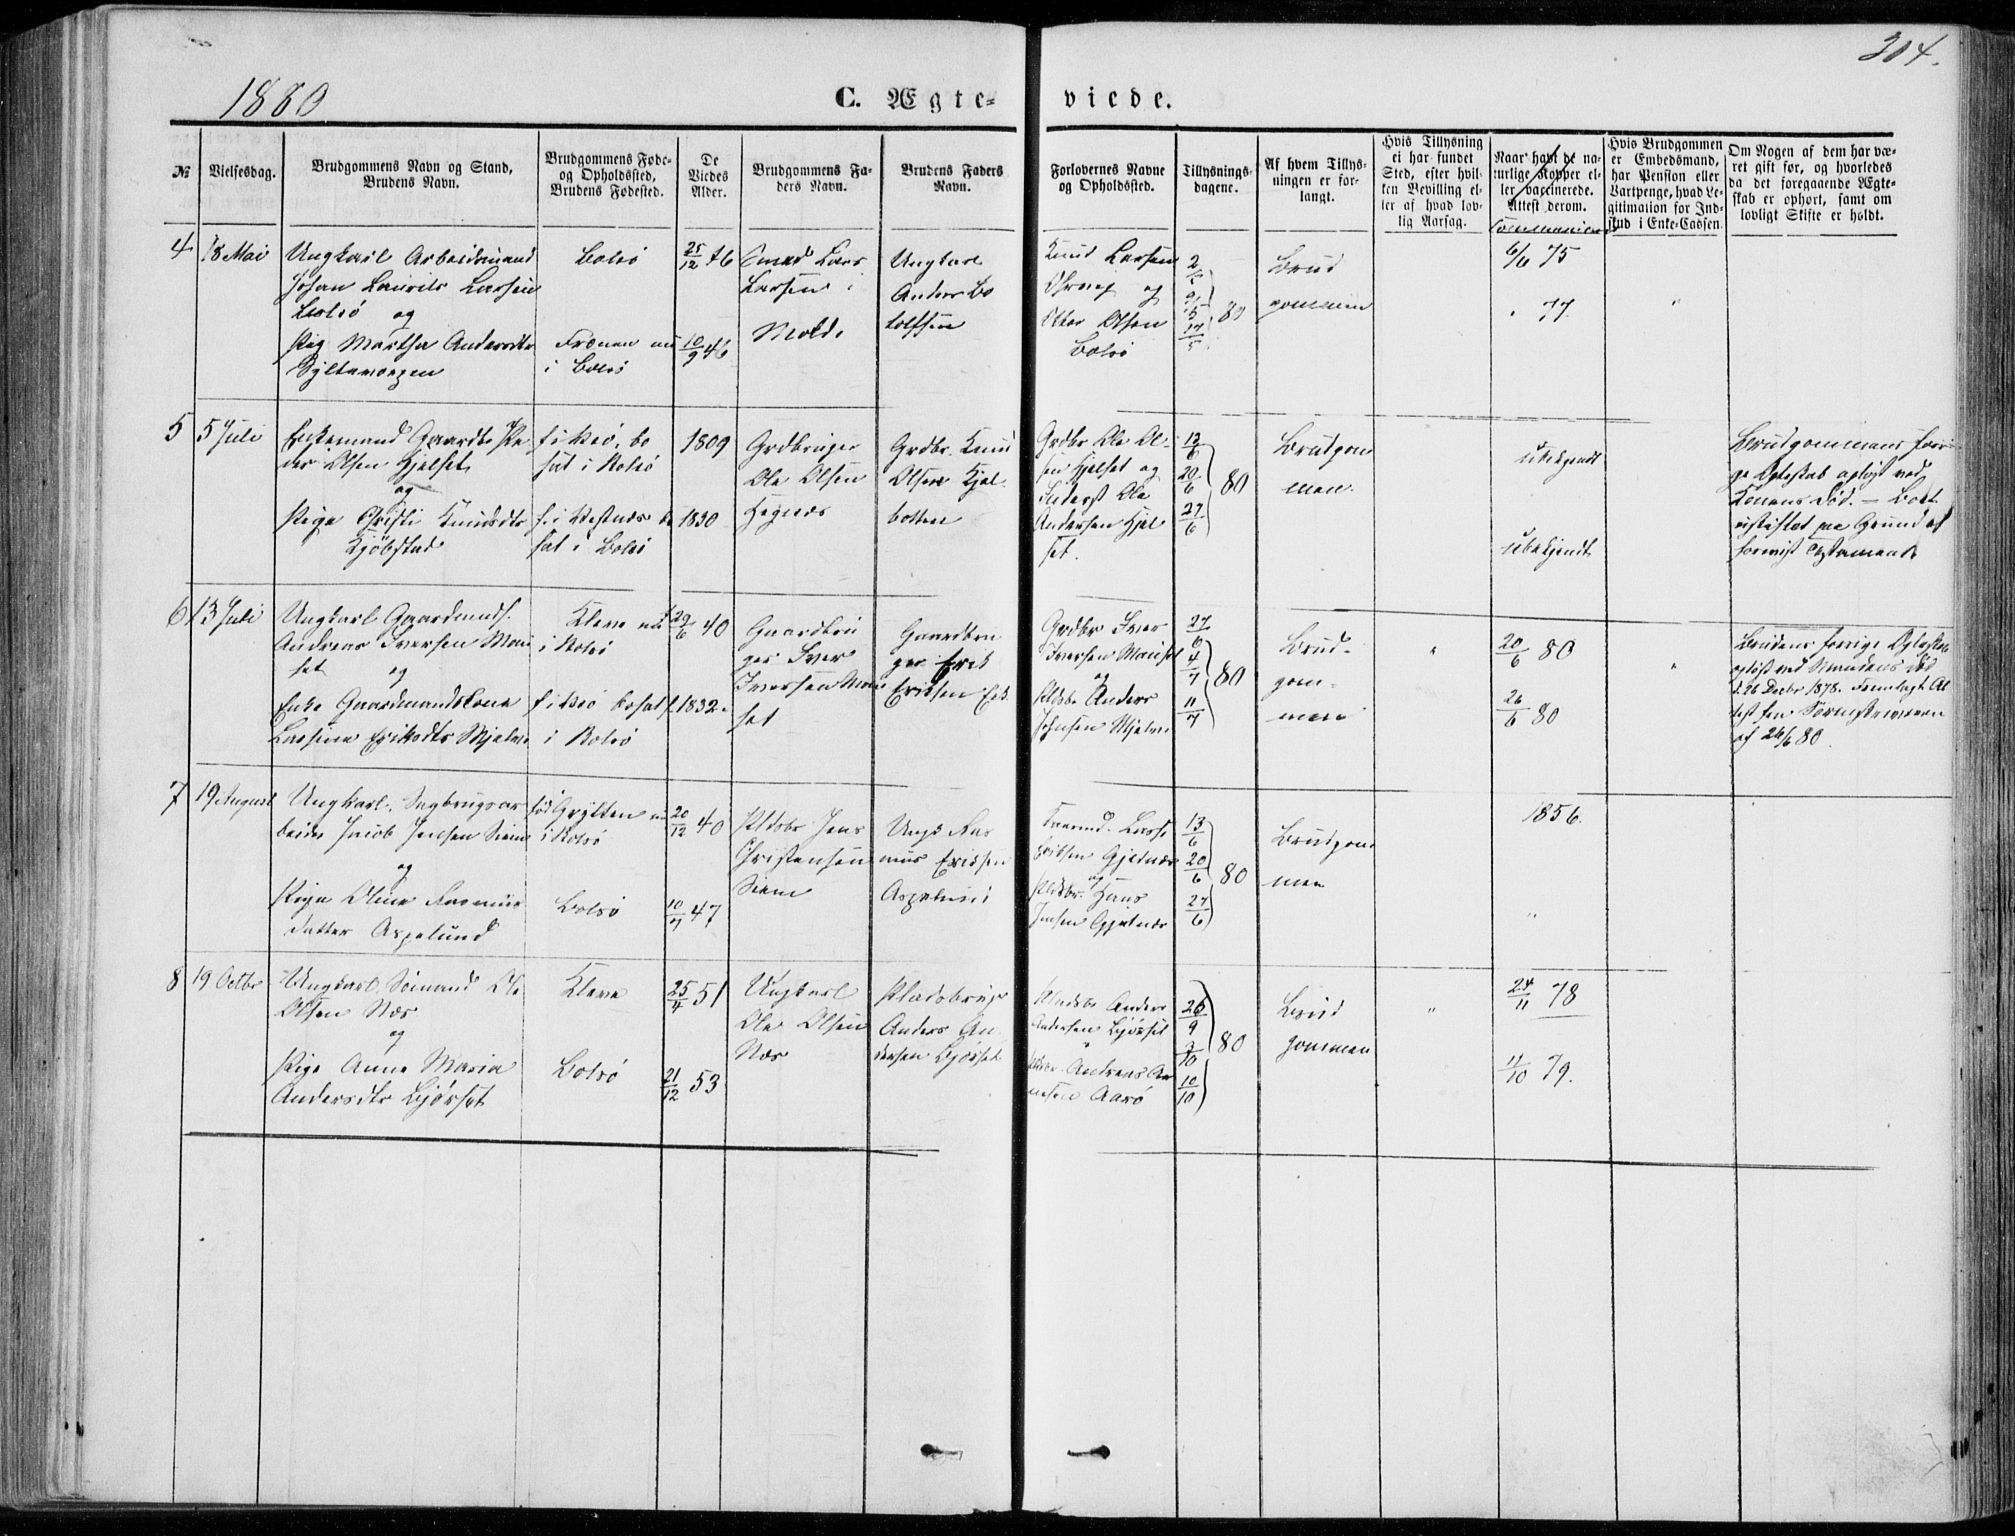 1880
304.
C. Ægte-
viede.
№
Vielsesdag.
Brudgommens Navn og Stand,
Brudens Navn.
Brudgommens Føde-
og Opholdssted,
Brudens Fødested.
De
Viedes
Alder.
Brudgommens Fa-
ders Navn.
Brudens Faders
Navn.
Forlovernes Navne
og Opholdssted.
Tillysnings-
dagene.
Af hvem Tillys-
ningen er for-
langt.
Hvis Tillysning
ei har fundet
Sted, efter hvil-
ken Bevilling el-
ler af hvad lov-
lig Aarsag.
Naar havt de na-
turlige Kopper el-
ler vaccinerede.
Attest derom.
Hvis Brudgommen
er Embedsmand,
har Pension eller
Vartpenge, hvad Le-
gitimation for Ind-
skud i Enke-Cassen.
Om Nogen af dem har væ-
ret gift før, og hvorledes
da det foregaaende Ægte-
skab er ophørt, samt om
lovligt Skifte er holdt.
4
18 Mai
Ungkarl Arbeidsmand
Johan Laurits Larsen
Bolsø og
Pig Martha Andersdtr
Bolsø
Frænen nu
i Bolsø
25/12 46
10/9 46
Smed Lars
Larsen i
Molde
Ungkarl
Anders Bo
tolfsen
Knud Larsen
og
Olsen
Bolsø
2/5
9/5
17/5
80
Brud
gommen
6/6 75
" 77.
5
5 Juli
Enkemand Gaardbr Pe
der Olsen Hjelset
og
Pige Christi Knudsdtr
Kjøbstad
f. i Veø, bo
sat i Bolsø
f. i Vestnæs bo
sat i Bolsø
1809
1830
Grdbruger
Ole Olsen
Hegnæs
Grdbr. Knud
Olsen Kjøl
botten
Grdbr Ole Ol-
sen Hjelset og
Inderst Ole
Andersen Hjel
set.
13/6
20/6
27/6
80
Brudgom
men.
ubekjendt
ubekjendt
Brudgommens forri
ge Ægteskab opløst ved
Konens Død. —
paa Grund af
Testamente
6
13 Juli
Ungkarl Gaardmands.
Andreas Iversen Mau
set og
Enke Gaardmandskone
Larsine Eriksdtr Mjelve
Kleve nu
i Bolsø
f. i Veø bosat
i Bolsø
29/6 40
f. 1832.
Gaardbru
ger Iver
Iversen Mau
set
Gaardbru
ger Erik
Eriksen Eik
Grdbr Iver
Iversen Mauset
og
Pldsbr Anders
Jensen Mjelve
27/6
4/7
11/7
80
Brud-
gom-
men
"
20/6 80
26/6 80
"
Brudens forrige Ægteskab
opløst ved Mandens Død
d. 26 Decbr 1878. Fremlagt At
test fra Sorenskriveren
af 26/6 80.
7
19 August
Ungkarl. Sagbrugsar
beider Jacob Jensen Siem
og
Pige Oline Rasmus
datter Aspelund
fød Grytten nu
i Bolsø
Bolsø
20/12 40
10/7 47
Pldsbr Jens
Christensen
Siem
Ungk Ras
mus Eriksen
Aspelund
Lasse
Eriksen Gjelnæs
og
Pldsbr. Hans
Jensen Gjelnæs
13/6
20/6
27/6
80
Brudgom
men
1856.
"
8
19 Octbr
Ungkarl Sømand Ole
Olsen Næs
og
Pige Anne Maria
Andersdtr Bjørset
Kleve
Bolsø
25/4 51
21/12 53
Ungkarl
Ole Olsen
Næs
Pladsbruger
Anders An
dersen Bjørset
Pladsbr Anders
Andersen Bjørset
"
Pldsbr Andreas Ar
nesen Aarø
26/9
3/10
10/10
80
Brud
gommen
"
24/11 78
11/10 79.